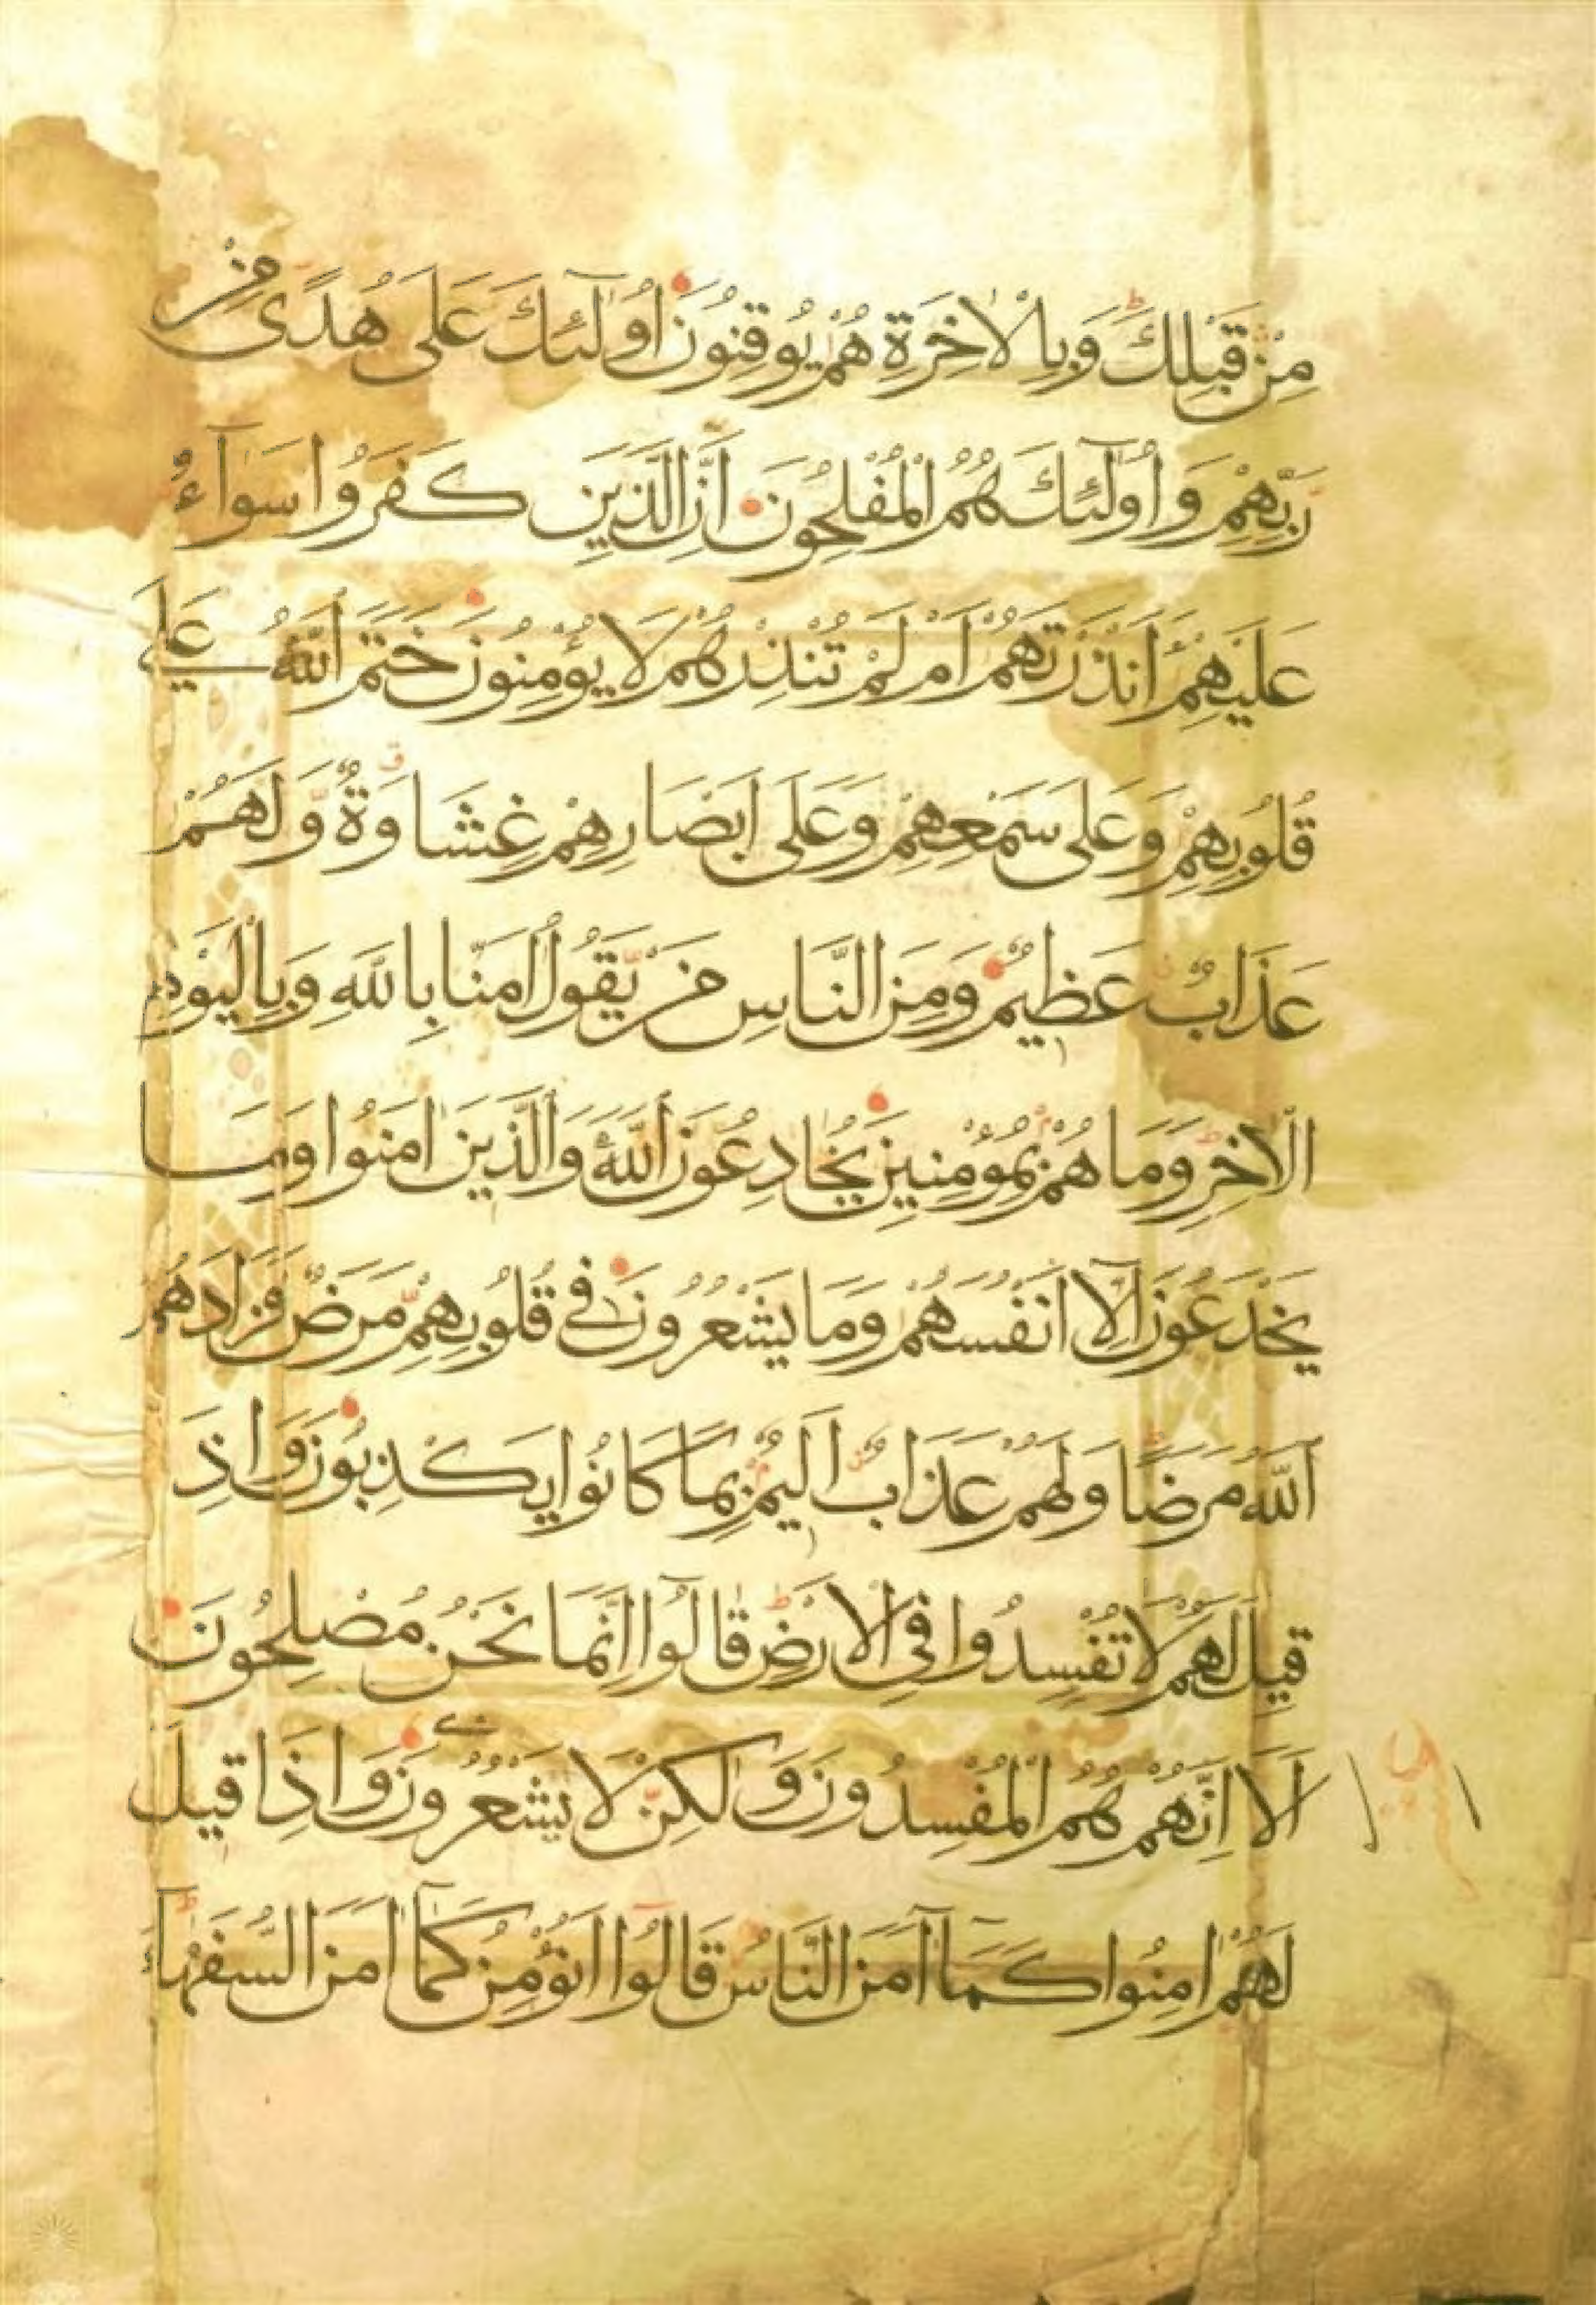 مِنْ قَبْلِكَ وَبِالْاٰخِرَةِ هُمْ يُوقِنُوْنَ اُولٰٓئِكَ عَلٰى هُدًى مِنْ
رَّبِّهِمْ وَاُولٰٓئِكَ هُمُ الْمُفْلِحُوْنَ اِنَّ الَّذِيْنَ كَفَرُوْا سَوَآءٌ
عَلَيْهِمْ ءَاَنْذَرْتَهُمْ اَمْ لَمْ تُنْذِرْهُمْ لَا يُؤْمِنُوْنَ خَتَمَ اللّٰهُ عَلٰى
قُلُوْبِهِمْ وَعَلٰى سَمْعِهِمْ وَعَلٰى اَبْصَارِهِمْ غِشَاوَةٌ وَّلَهُمْ
عَذَابٌ عَظِيْمٌ وَمِنَ النَّاسِ مَنْ يَّقُوْلُ اٰمَنَّا بِاللّٰهِ وَبِالْيَوْمِ
الْاٰخِرِ وَمَا هُمْ بِمُؤْمِنِيْنَ يُخَادِعُوْنَ اللّٰهَ وَالَّذِيْنَ اٰمَنُوْا وَمَا
يَخْدَعُوْنَ اِلَّآ اَنْفُسَهُمْ وَمَا يَشْعُرُوْنَ فِيْ قُلُوْبِهِمْ مَّرَضٌ فَزَادَهُمُ
اللّٰهُ مَرَضًا وَلَهُمْ عَذَابٌ اَلِيْمٌ بِمَا كَانُوْا يَكْذِبُوْنَ وَاِذَا
قِيْلَ لَهُمْ لَا تُفْسِدُوْا فِي الْاَرْضِ قَالُوْٓا اِنَّمَا نَحْنُ مُصْلِحُوْنَ
اَلَآ اِنَّهُمْ هُمُ الْمُفْسِدُوْنَ وَلٰكِنْ لَّا يَشْعُرُوْنَ وَاِذَا قِيْلَ
لَهُمْ اٰمِنُوْا كَمَآ اٰمَنَ النَّاسُ قَالُوْٓا اَنُؤْمِنُ كَمَآ اٰمَنَ السُّفَهَآءُ